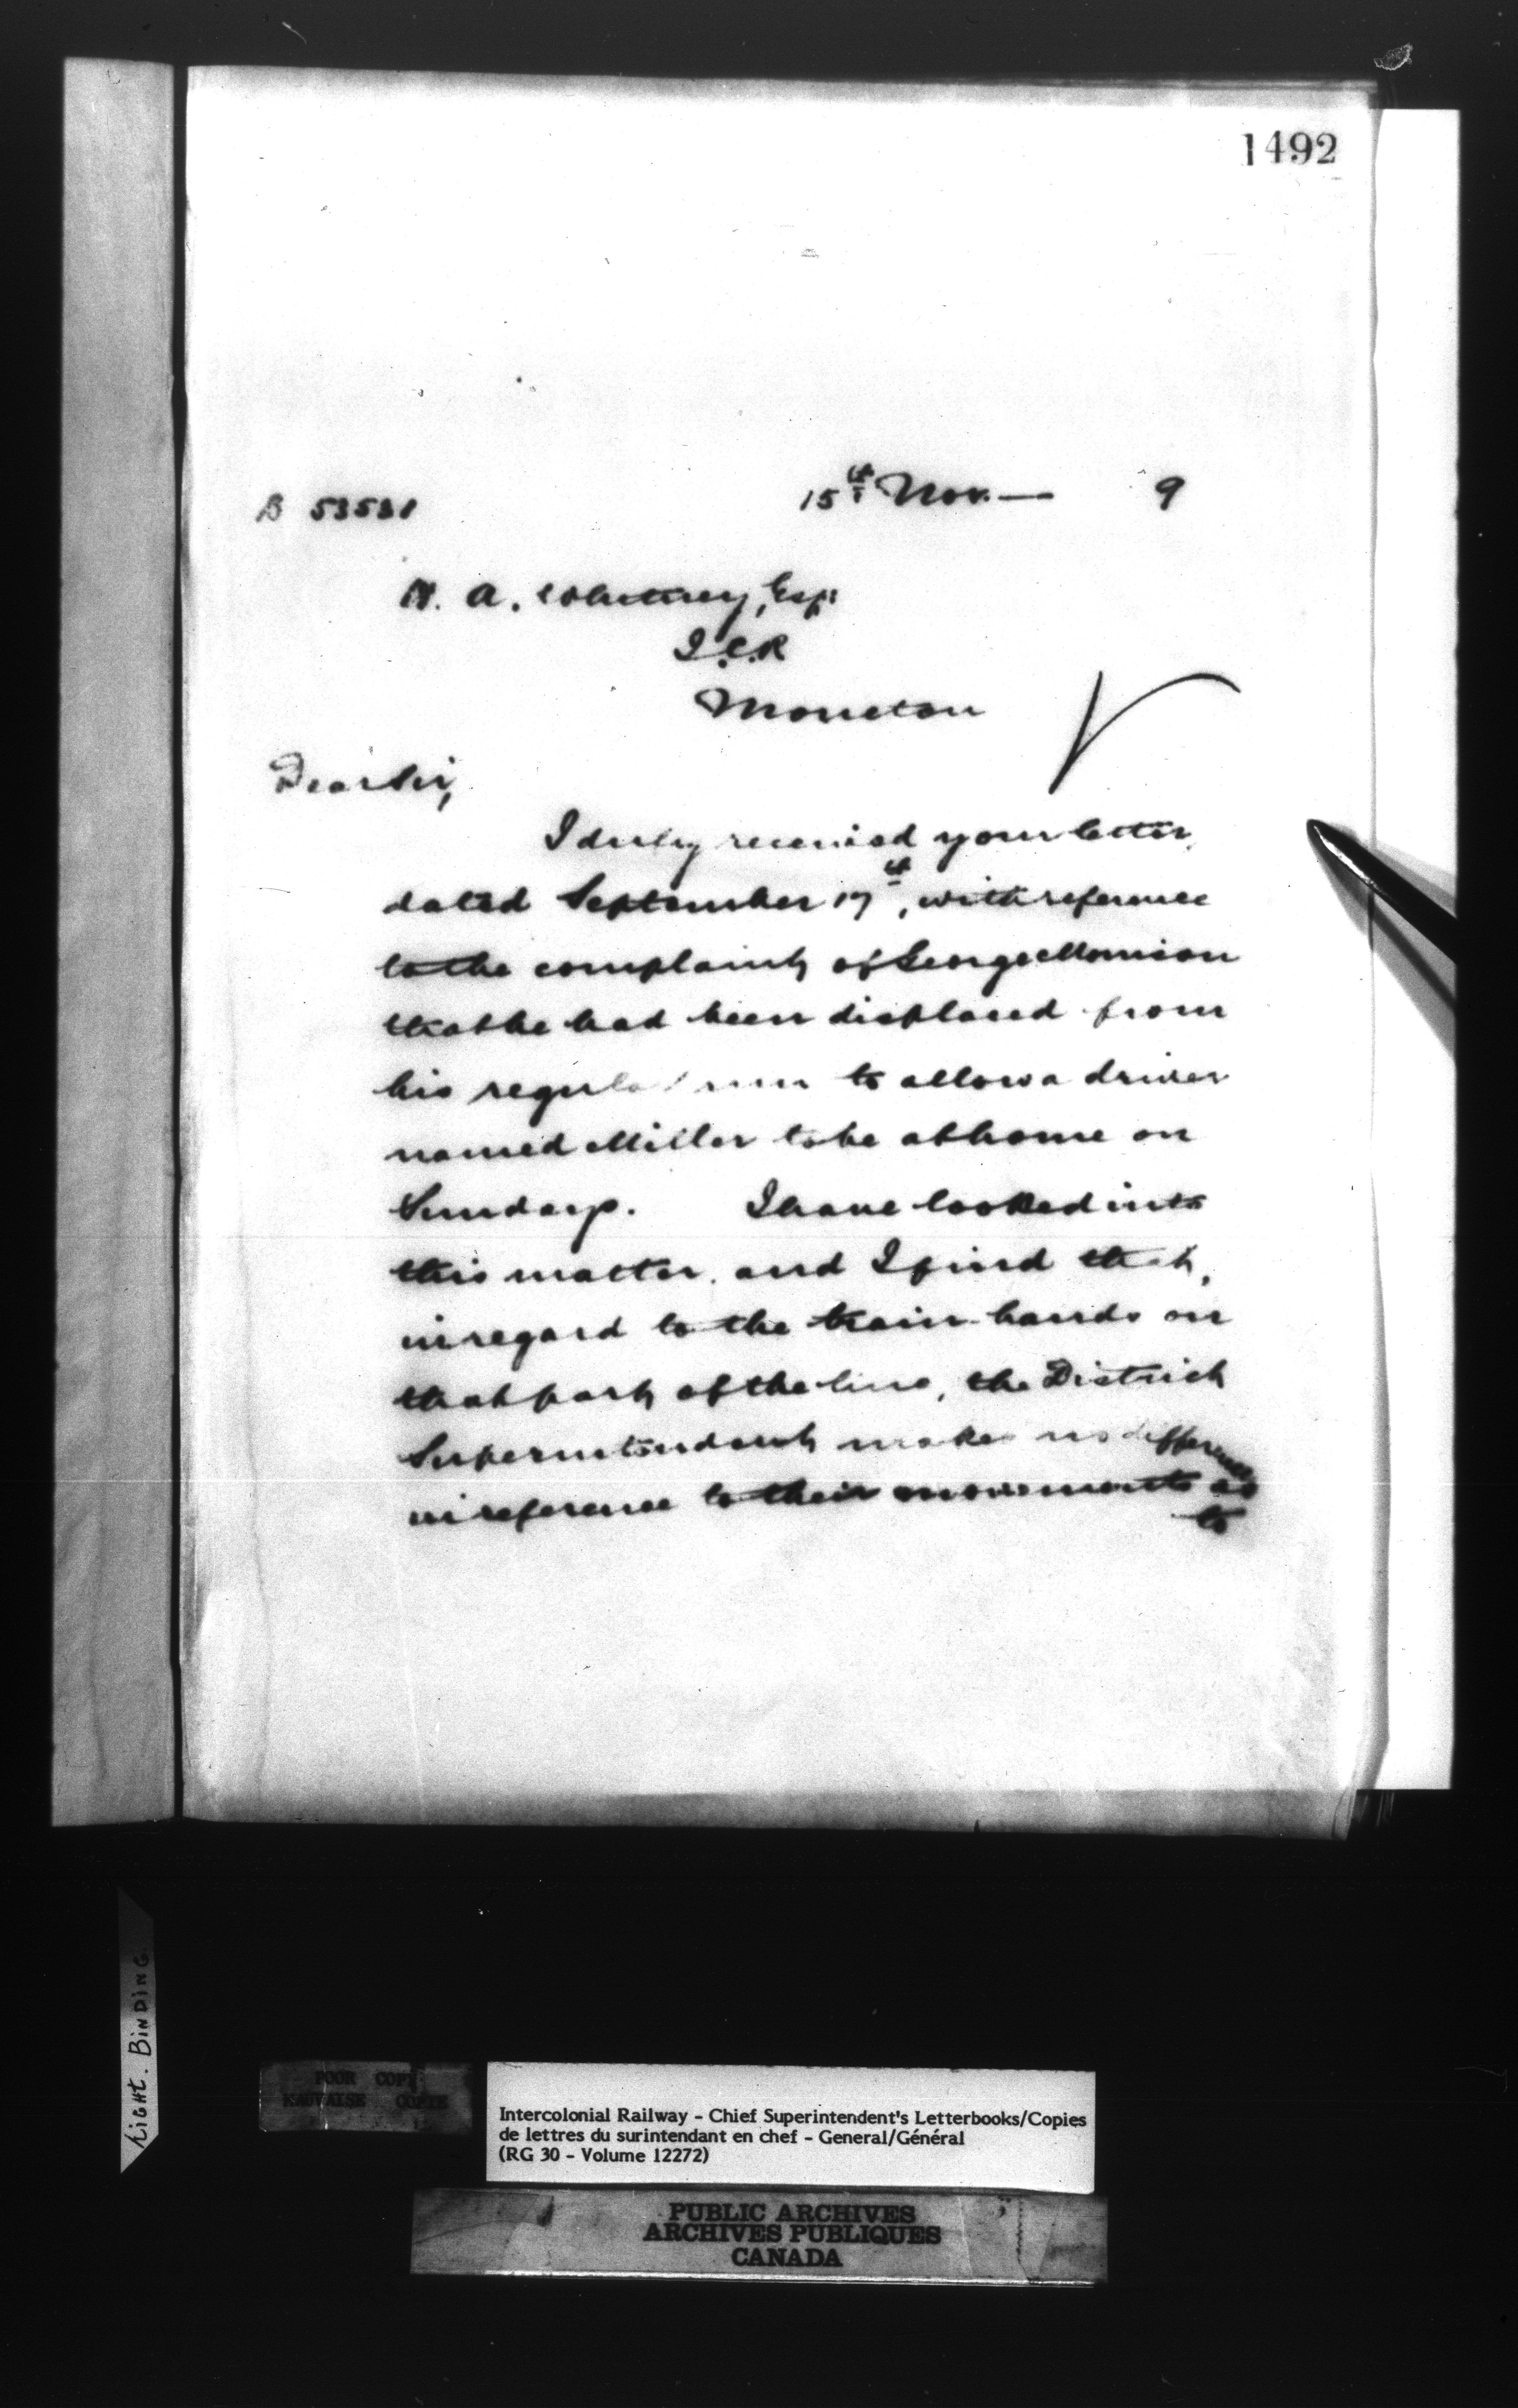 1492
B 53531
15th Nov. — 9
H. A. Whitney, Esq:
I.C.R
Moncton
Dear Sir,
I duly received your letter,
dated September 17th, with reference
to the complaint of George Morrison
that he had been displaced from
his regular run to allow a driver
named Miller to be at home on
Sundays. I have looked into
this matter, and I find that,
in regard to the train-hands on
that part of the line, the District
Superintendent makes no difference
in reference to their movements as
to
Right. BINDING
POOR COPY
MAUVAISE COPIE
Intercolonial Railway - Chief Superintendent's Letterbooks/Copies
de lettres du surintendant en chef - General/Général
(RG 30 - Volume 12272)
PUBLIC ARCHIVES
ARCHIVES PUBLIQUES
CANADA